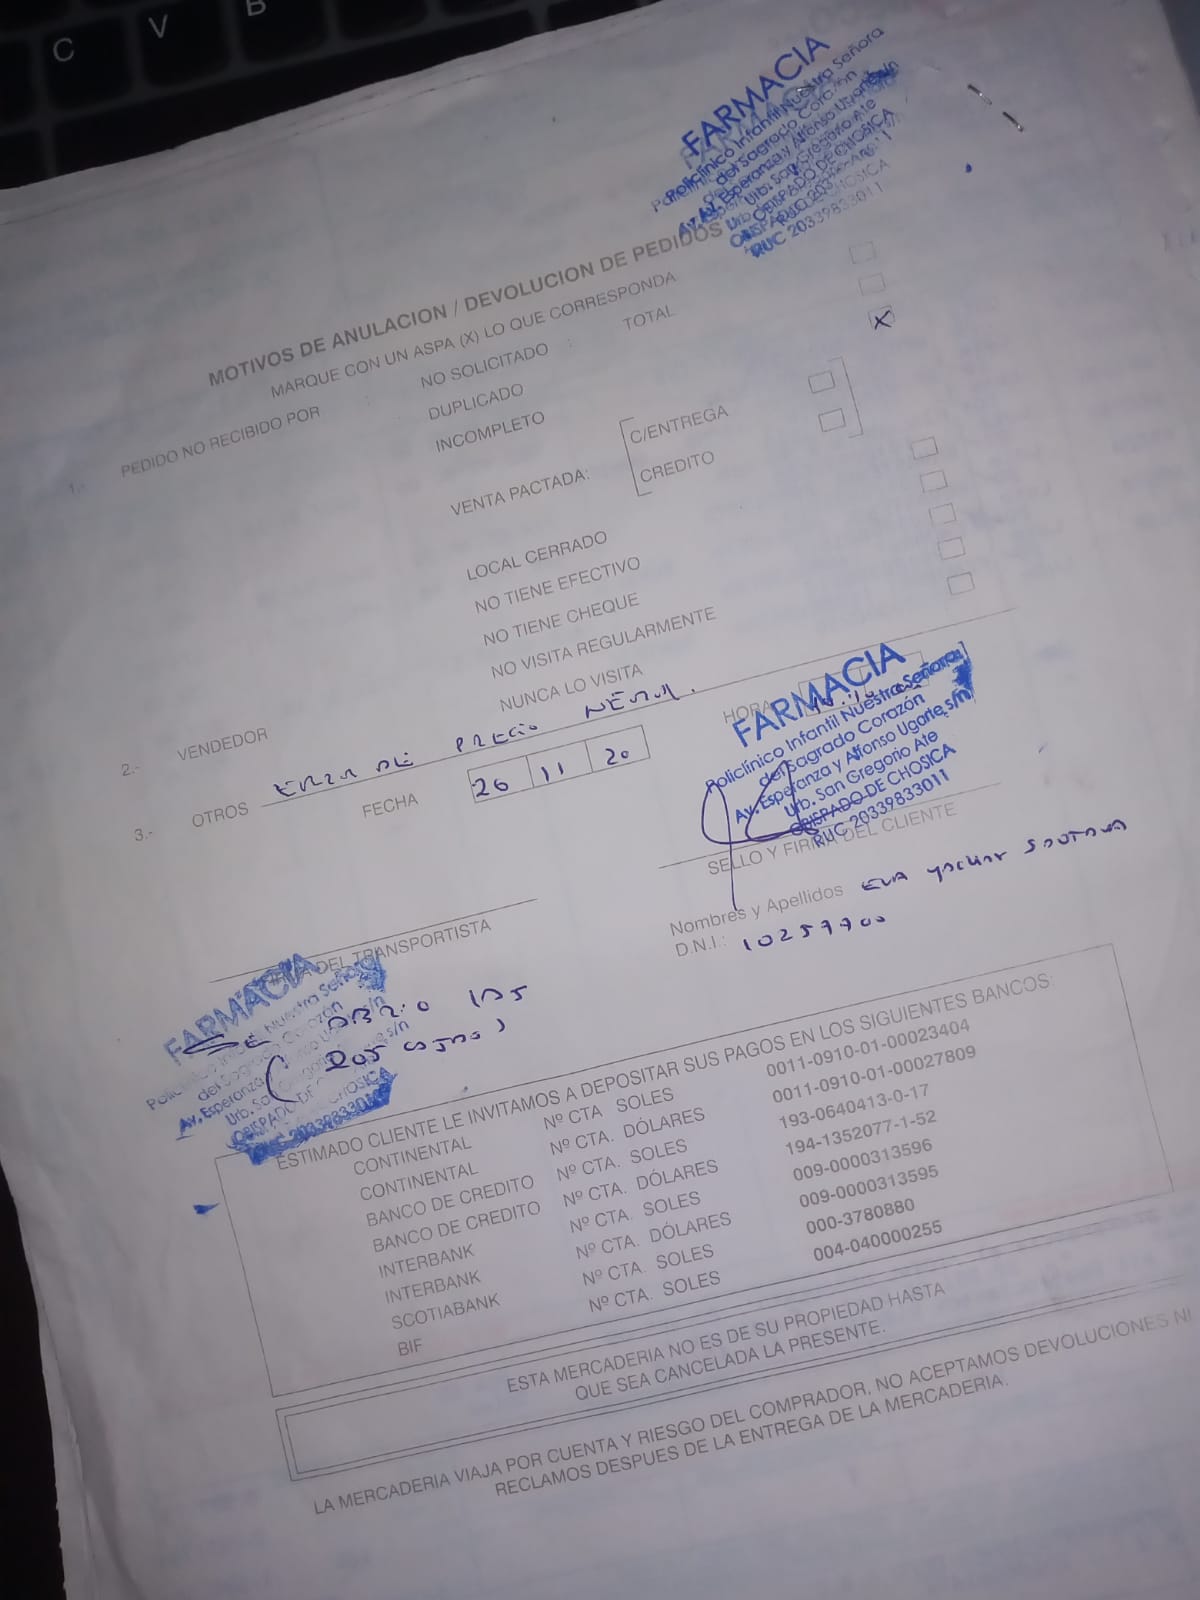 C V B
FARMACIA
Policlínico Infantil Nuestra Señora
del Sagrado Corazón
Av. Esperanza y Alfonso Ugarte s/n
Urb. San Gregorio Ate
OBISPADO DE CHOSICA
RUC 20339833011
MOTIVOS DE ANULACION / DEVOLUCION DE PEDIDOS
MARQUE CON UN ASPA (X) LO QUE CORRESPONDA
1.- PEDIDO NO RECIBIDO POR : NO SOLICITADO : TOTAL
DUPLICADO
INCOMPLETO X
VENTA PACTADA: C/ENTREGA
CREDITO
LOCAL CERRADO
NO TIENE EFECTIVO
NO TIENE CHEQUE
NO VISITA REGULARMENTE
NUNCA LO VISITA
2.- VENDEDOR
3.- OTROS DE PRECIO
FECHA 26 11 20 HORA
FARMACIA
Policlínico Infantil Nuestra Señora
del Sagrado Corazón
Av. Esperanza y Alfonso Ugarte s/n
Urb. San Gregorio Ate
OBISPADO DE CHOSICA
RUC 20339833011
SELLO Y FIRMA DEL CLIENTE
Nombres y Apellidos EVA
D.N.I.: 10257700
FIRMA DEL TRANSPORTISTA
FARMACIA
Nuestra Señora
del Sagrado Corazón
Av. Esperanza
OBISPADO DE CHOSICA
RUC 20339833011
SE ABRIO LAS
( DOS CAJAS )
ESTIMADO CLIENTE LE INVITAMOS A DEPOSITAR SUS PAGOS EN LOS SIGUIENTES BANCOS:
CONTINENTAL Nº CTA SOLES 0011-0910-01-00023404
CONTINENTAL Nº CTA. DÓLARES 0011-0910-01-00027809
BANCO DE CREDITO Nº CTA. SOLES 193-0640413-0-17
BANCO DE CREDITO Nº CTA. DÓLARES 194-1352077-1-52
INTERBANK Nº CTA. SOLES 009-0000313596
INTERBANK Nº CTA. DÓLARES 009-0000313595
SCOTIABANK Nº CTA. SOLES 000-3780880
BIF Nº CTA. SOLES 004-040000255
ESTA MERCADERIA NO ES DE SU PROPIEDAD HASTA
QUE SEA CANCELADA LA PRESENTE.
LA MERCADERIA VIAJA POR CUENTA Y RIESGO DEL COMPRADOR, NO ACEPTAMOS DEVOLUCIONES NI
RECLAMOS DESPUES DE LA ENTREGA DE LA MERCADERIA.